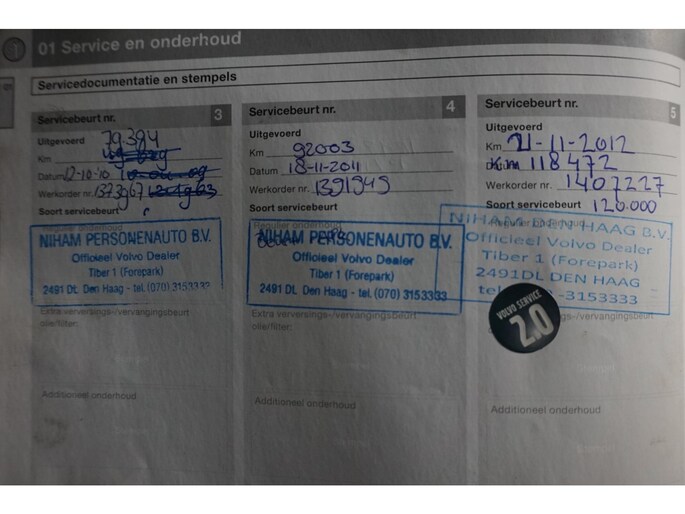 01 Service en onderhoud
Servicedocumentatie en stempels
Servicebeurt nr. 3
Uitgevoerd 79384
Km
Datum 12-10-10
Werkorder nr. 1373967
Soort servicebeurt
Regulier onderhoud
NIHAM PERSONENAUTO B.V.
Officieel Volvo Dealer
Tiber 1 (Forepark)
2491 DL Den Haag - tel. (070) 3153333
Extra verversings-/vervangingsbeurt
olie/filter:
Additioneel onderhoud
Servicebeurt nr. 4
Uitgevoerd
Km 92003
Datum 18-11-2011
Werkorder nr. 1391949
Soort servicebeurt
Regulier onderhoud
NIHAM PERSONENAUTO B.V.
Officieel Volvo Dealer
Tiber 1 (Forepark)
2491 DL Den Haag - tel. (070) 3153333
Extra verversings-/vervangingsbeurt
olie/filter:
Additioneel onderhoud
Servicebeurt nr. 5
Uitgevoerd
Km 21-11-2012
Datum KM 118472
Werkorder nr. 1407227
Soort servicebeurt 120.000
NIHAM DEN HAAG B.V.
Officieel Volvo Dealer
Tiber 1 (Forepark)
2491DL DEN HAAG
tel. -3153333
VOLVO SERVICE
2.0
Additioneel onderhoud